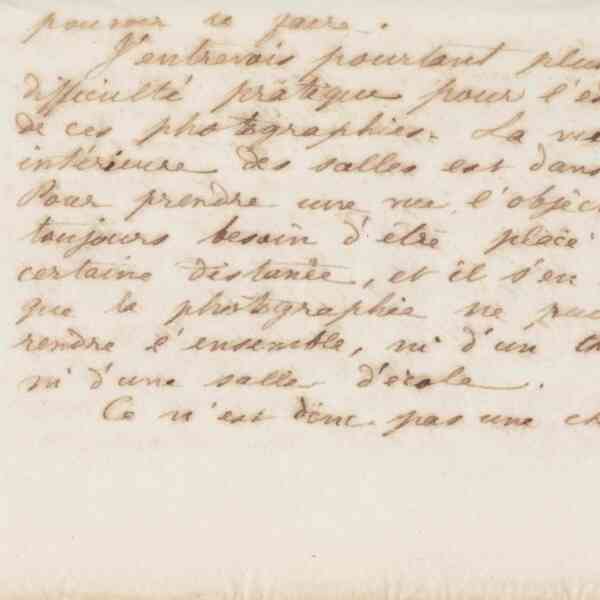 pouvoir se faire.
J'entrevois pourtant plus
difficulté pratique pour l'e
de ces photographies. La vue
intérieure des salles est dans
Pour prendre une vue, l'objec
toujours besoin d'être placé
certaine distance, et il s'en
que la photographie ne
rendre l'ensemble, ni d'un
ni d'une salle d'école.
Ce n'est donc pas une ch